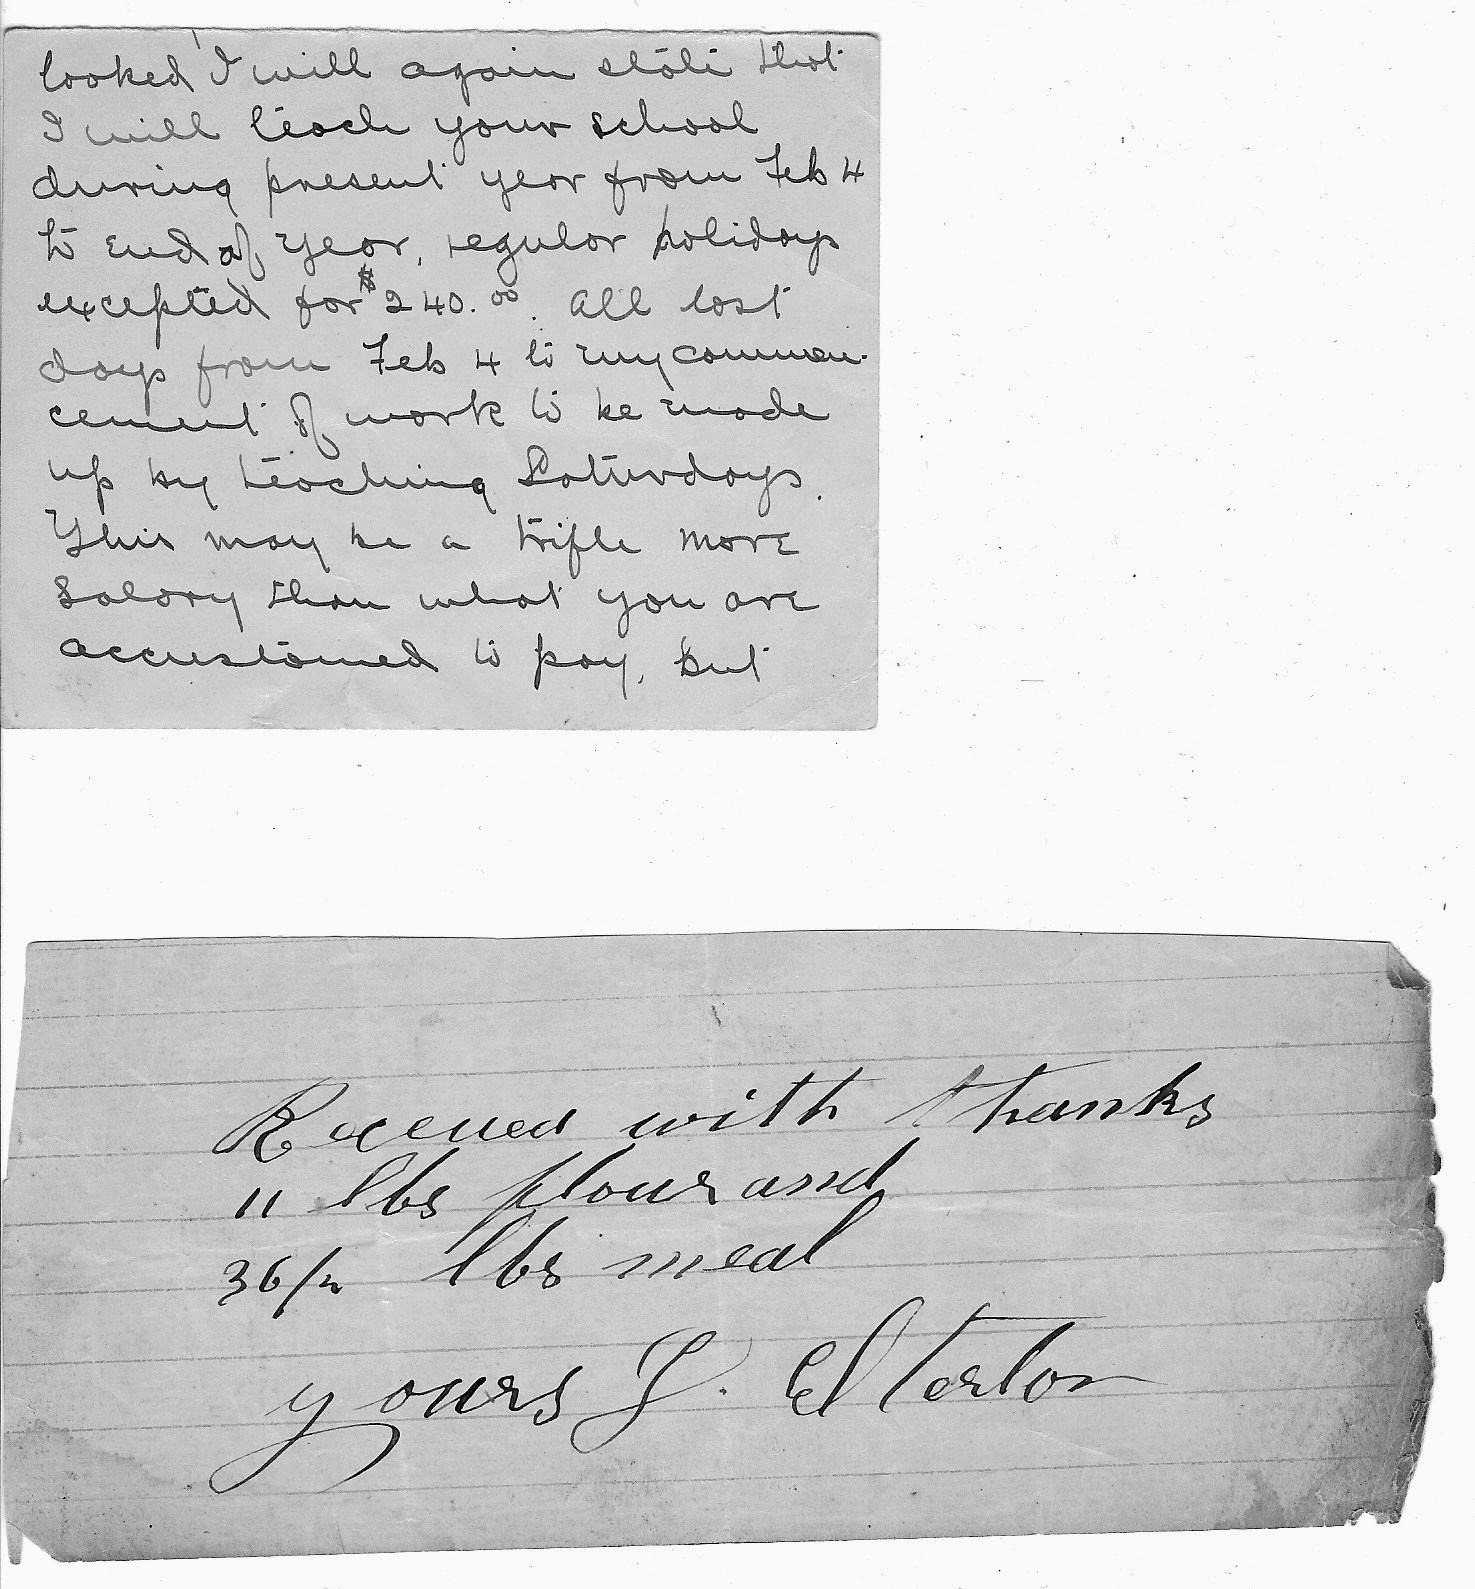 looked I will again state that
I will teach your school
during present year from Feb 4
to end of year, regular holidays
excepted for $240.00. All lost
days from Feb 4 to my commen-
cement of work to be made
up by teaching Saturdays.
This may be a trifle more
Salary than what you are
accustomed to pay, but
Receued with thanks
11 lbs flour and
36/2 lbs meal
yours J.